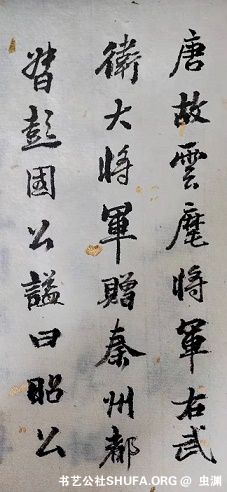 唐故雲麾將軍右武
衛大將軍贈秦州都
督彭國公謚曰昭公
书艺公社SHUFA.ORG @ 虫渊